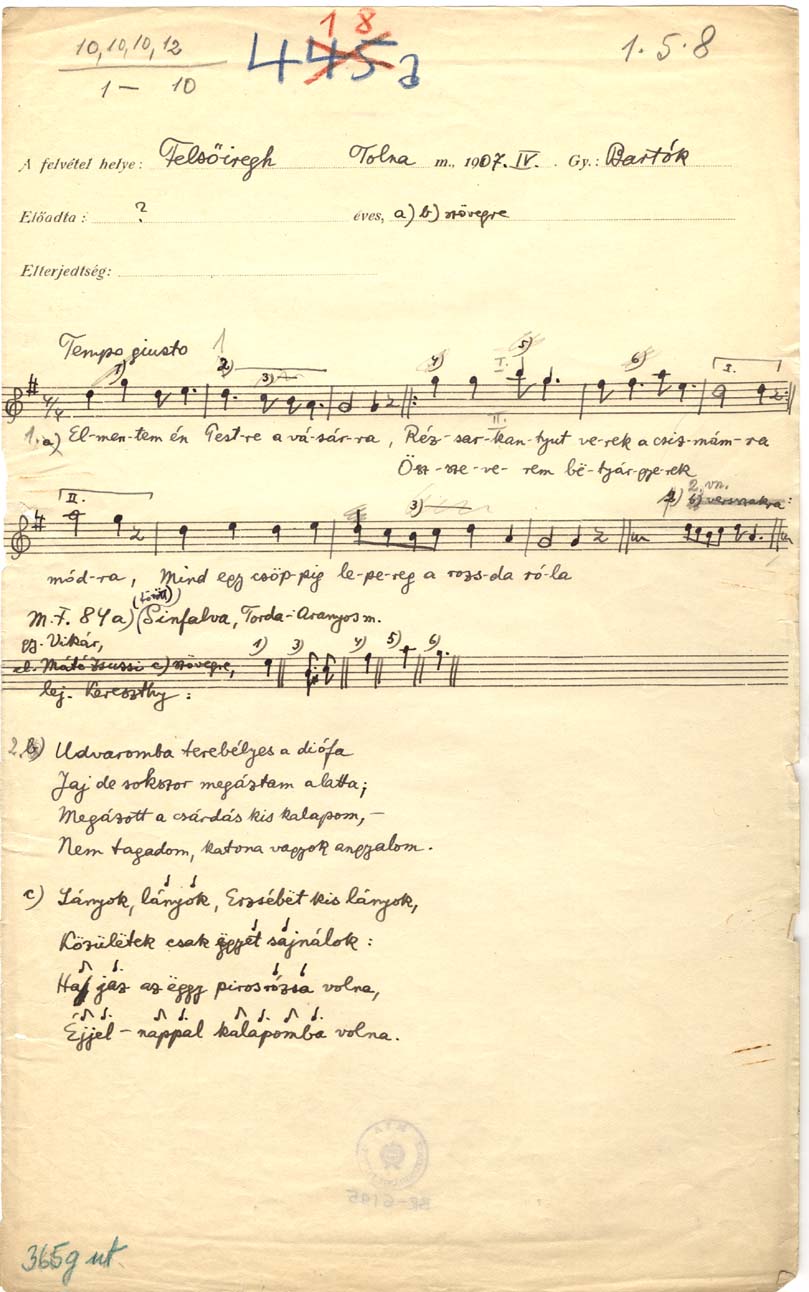 10, 10, 10, 12
1 – 10
445a
18
1.5.8
A felvétel helye: Felsőiregh Tolna m., 1907. IV. Gy.: Bartók
Előadta: ? éves, a) b) szövegre
Elterjedtség:
Tempo giusto 1
1) 2) 3) 4) I. 5) 6) I.
1. a) El-men-tem én Pest-re a vá-sár-ra, Réz-sar-kan-tyut ve-rek a csiz-mám-ra
II.
Ösz-sze-ve-rem bë-tyár-gye-rek
II. 3) 2. vsz.
mód-ra, Mind egy csöp-pig le-pe-reg a rozs-da ró-la
M.F. 84a) (Sinfalva, Torda-Aranyos m.
gy. Vikár,
el. Máté Zsuzsi c) szövegre,
lej. Kereszthy:
1) 3) 4) 5) 6)
2. b) Udvaromba terebélyes a diófa
Jaj de sokszor megáztam alatta;
Megázott a csárdás kis kalapom, –
Nem tagadom, katona vagyok angyalom.
c) Lányok, lányok, Erzsébet kis lányok,
Közületek csak ëgyet sajnálok:
Haj jaz az ëggy piros rózsa volna,
Éjjel-nappal kalapomba volna.
BR-6195
365g ut.